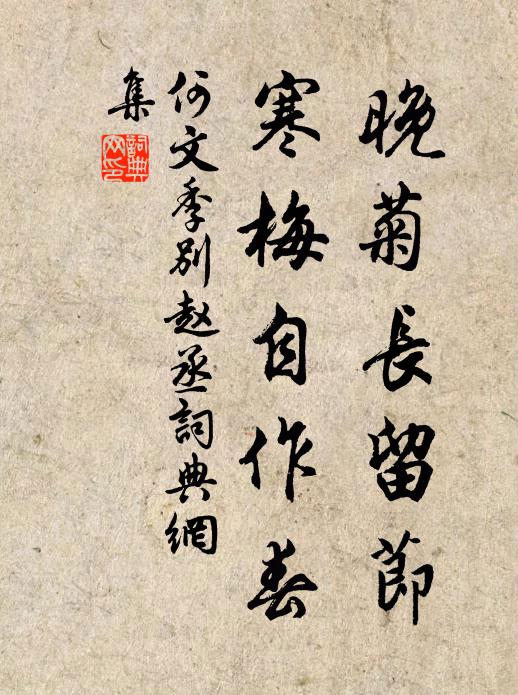 晚菊長留節
寒梅自作春
何文季別趙丞詞典網
集
詞典
网印